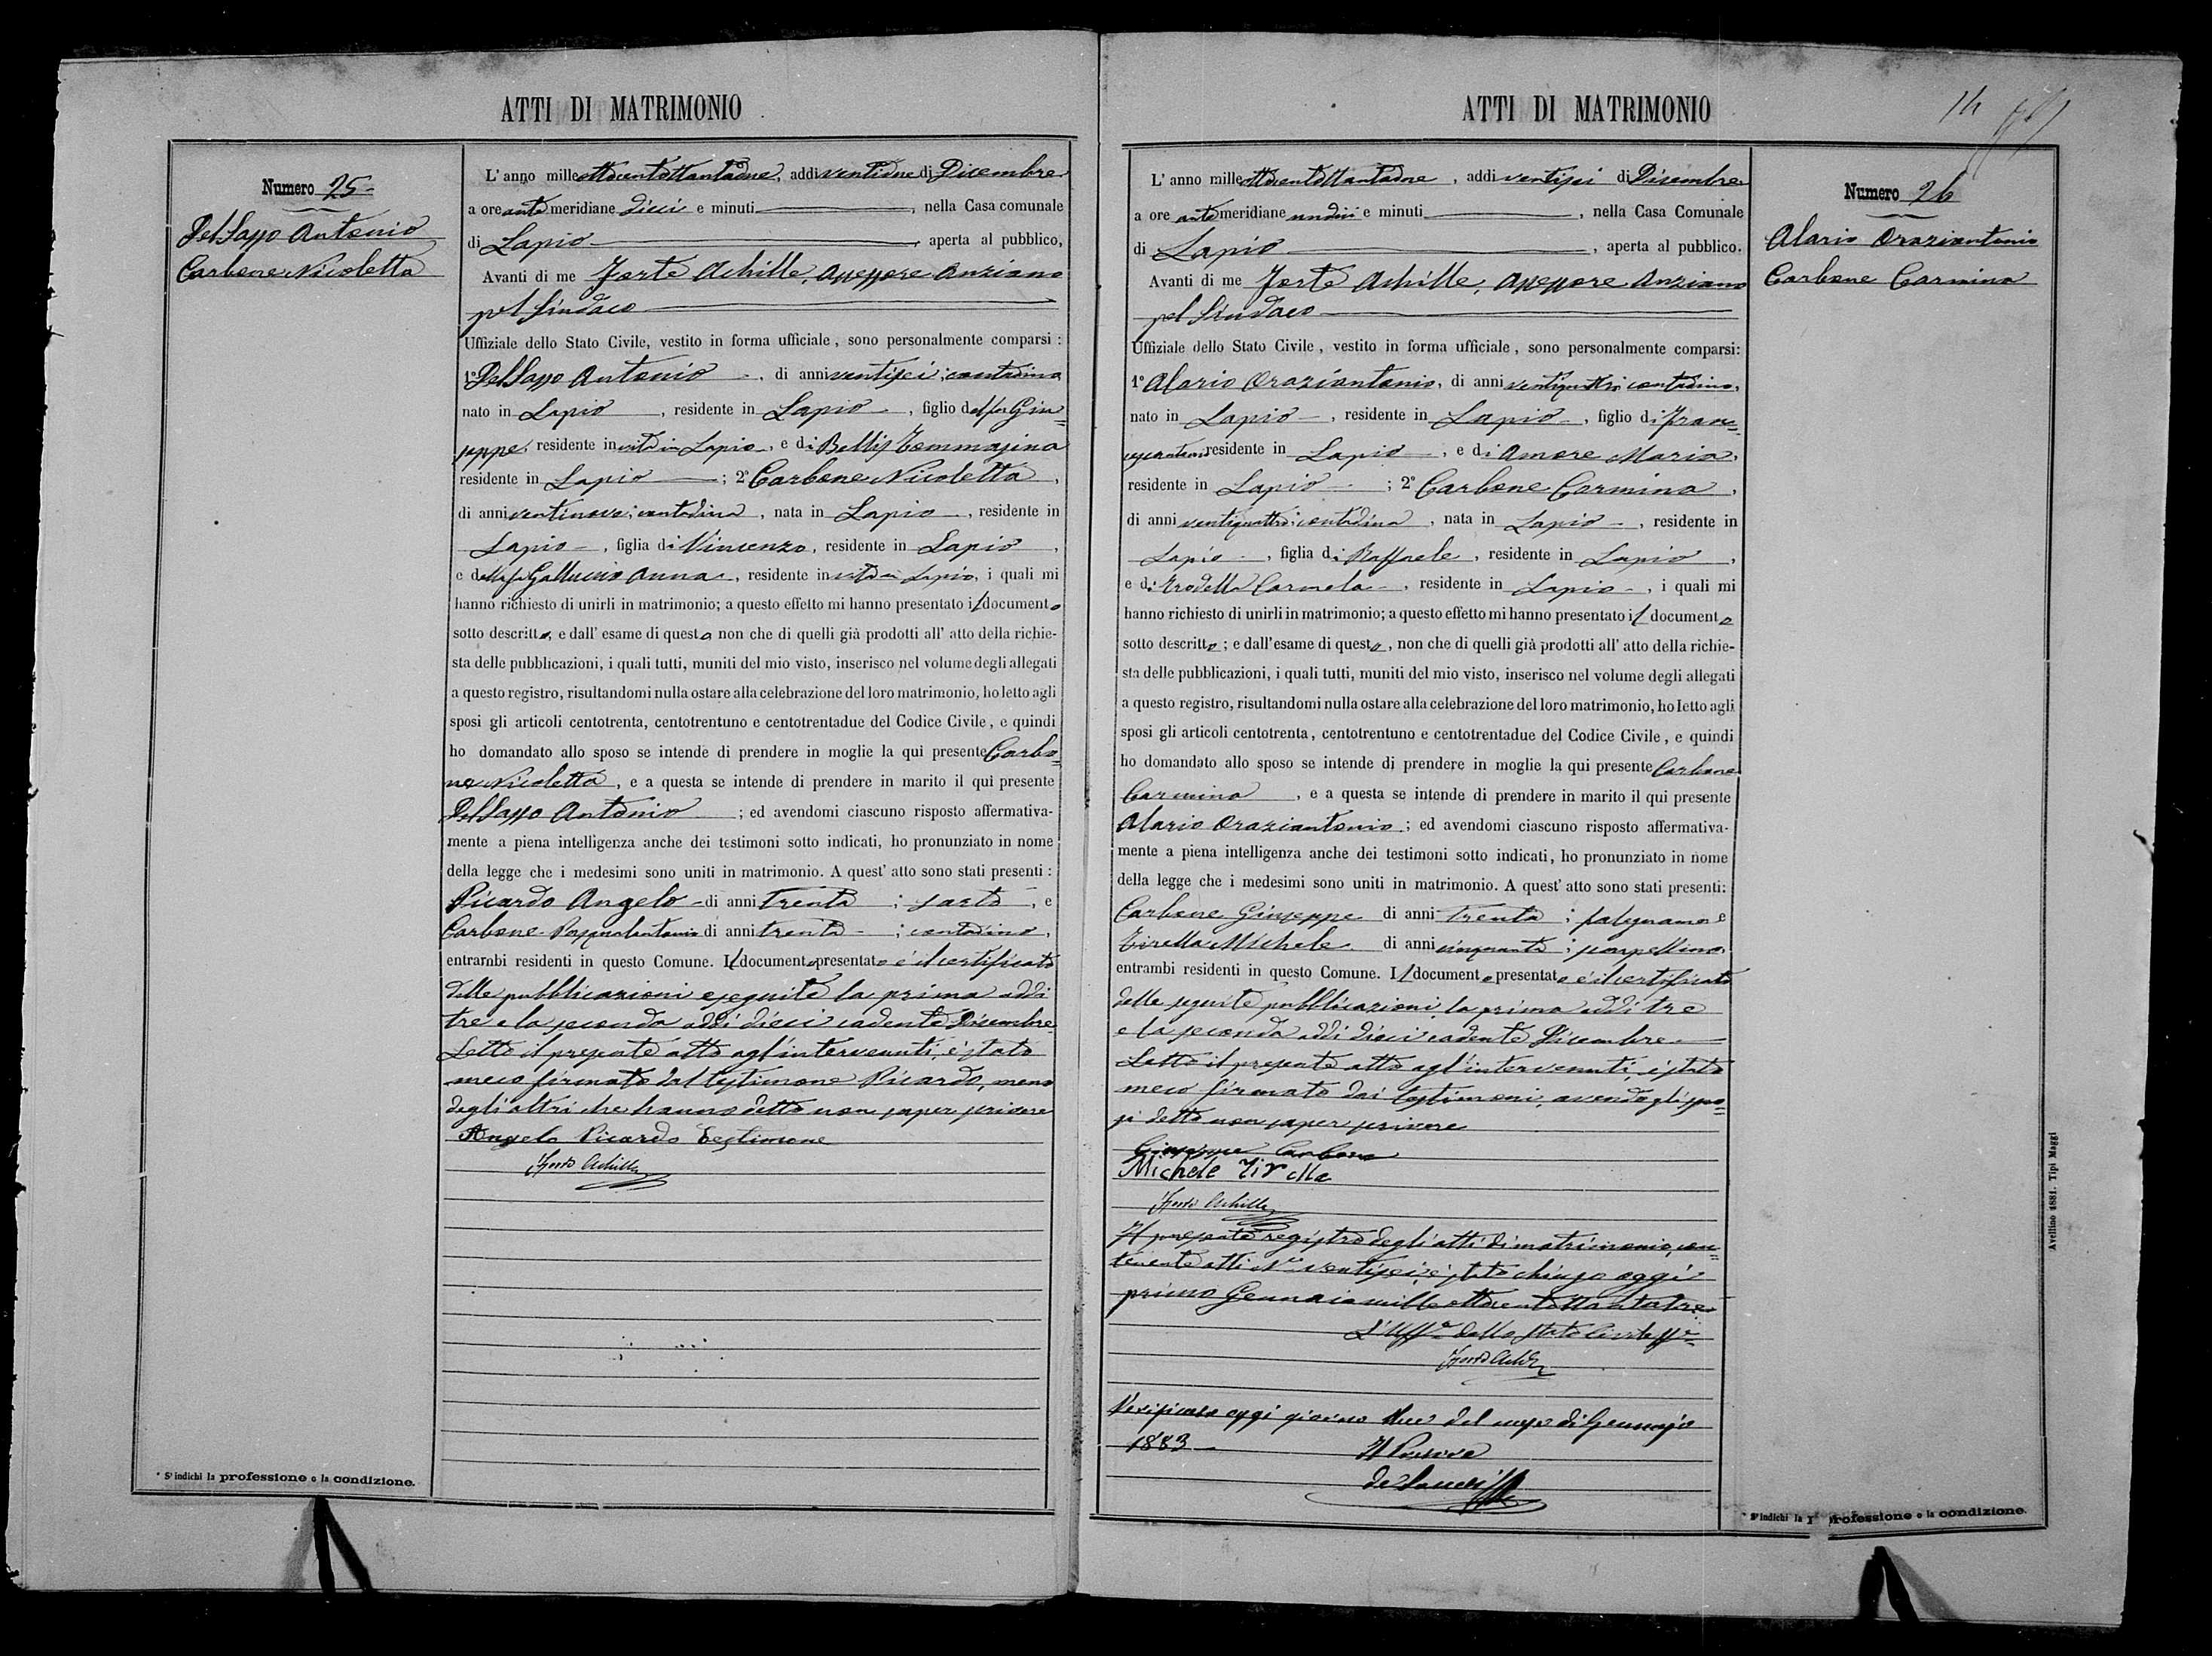 ATTI DI MATRIMONIO
Numero 25
Del Sasso Antonio
Carbone Nicoletta
L' anno mille ottocentottantadue, addi ventidue di Dicembre
a ore anti meridiane dieci e minuti , nella Casa comunale
di Lapio , aperta al pubblico,
Avanti di me Forte Achille, Assessore Anziano
pel Sindaco
Uffiziale dello Stato Civile, vestito in forma ufficiale, sono personalmente comparsi :
1° Del Sasso Antonio , di anni ventisei, contadino
nato in Lapio , residente in Lapio , figlio del fu Giu=
seppe, residente in vita in Lapio, e di Bellis Tommasina
residente in Lapio ; 2° Carbone Nicoletta ,
di anni ventinove; contadina , nata in Lapio , residente in
Lapio , figlia di Vincenzo, residente in Lapio ,
e della fu Galluccio Anna , residente in vita in Lapio, i quali mi
hanno richiesto di unirli in matrimonio; a questo effetto mi hanno presentato il documento
sotto descritto, e dall' esame di questo non che di quelli già prodotti all' atto della richie-
sta delle pubblicazioni, i quali tutti, muniti del mio visto, inserisco nel volume degli allegati
a questo registro, risultandomi nulla ostare alla celebrazione del loro matrimonio, ho letto agli
sposi gli articoli centotrenta, centotrentuno e centotrentadue del Codice Civile, e quindi
ho domandato allo sposo se intende di prendere in moglie la qui presente Carbo=
ne Nicoletta , e a questa se intende di prendere in marito il qui presente
Del Sasso Antonio ; ed avendomi ciascuno risposto affermativa-
mente a piena intelligenza anche dei testimoni sotto indicati, ho pronunziato in nome
della legge che i medesimi sono uniti in matrimonio. A quest' atto sono stati presenti :
Picardo Angelo di anni trenta ; sarto , e
Carbone Pasqualantonio di anni trenta ; contadino ,
entrambi residenti in questo Comune. Il documento presentato è il certificato
delle pubblicazioni eseguite la prima addi
tre e la seconda addi dieci cadente Dicembre
Letto il presente atto agl'intervenuti, è stato
meco firmato dal testimone Picardo, meno
degli altri che hanno detto non saper scrivere
Angelo Picardo Testimone
Forte Achille
* S' indichi la professione o la condizione.
ATTI DI MATRIMONIO
14
Numero 26
Alario Oraziantonio
Carbone Carmina
L' anno mille ottocentottantadue , addi ventisei di Dicembre
a ore anti meridiane undici e minuti , nella Casa Comunale
di Lapio , aperta al pubblico.
Avanti di me Forte Achille, Assessore Anziano
pel Sindaco
Uffiziale dello Stato Civile, vestito in forma ufficiale, sono personalmente comparsi:
1° Alario Oraziantonio, di anni ventiquattro contadino,
nato in Lapio , residente in Lapio , figlio di Fran=
cescantonio residente in Lapio , e di Amore Maria,
residente in Lapio ; 2° Carbone Carmina ,
di anni ventiquattro; contadina , nata in Lapio , residente in
Lapio , figlia di Raffaele , residente in Lapio ,
e di Trodella Carmela , residente in Lapio , i quali mi
hanno richiesto di unirli in matrimonio; a questo effetto mi hanno presentato il documento
sotto descritto ; e dall'esame di questo , non che di quelli già prodotti all' atto della richie-
sta delle pubblicazioni, i quali tutti, muniti del mio visto, inserisco nel volume degli allegati
a questo registro, risultandomi nulla ostare alla celebrazione del loro matrimonio, ho letto agli
sposi gli articoli centotrenta, centotrentuno e centotrentadue del Codice Civile, e quindi
ho domandato allo sposo se intende di prendere in moglie la qui presente Carbone
Carmina , e a questa se intende di prendere in marito il qui presente
Alario Oraziantonio ; ed avendomi ciascuno risposto affermativa-
mente a piena intelligenza anche dei testimoni sotto indicati, ho pronunziato in nome
della legge che i medesimi sono uniti in matrimonio. A quest' atto sono stati presenti:
Carbone Giuseppe di anni trenta ; falegname e
Tirella Michele di anni cinquanta ; scarpellino,
entrambi residenti in questo Comune. Il documento presentato è il certificato
delle seguite pubblicazioni la prima addi tre
e la seconda addi dieci cadente Dicembre
Letto il presente atto agl'intervenuti, è stato
meco firmato dai testimoni, avendo gli spo=
si detto non saper scrivere
Giuseppe Carbone
Michele Tirella
Forte Achille
Il presente registro degli atti di matrimonio, con=
tenente atti N° ventisei, è stato chiuso oggi
primo Gennaio mille ottocentottantatre
L'Uff.e dello Stato Civile
Forte Achille
Verificato oggi giorno due del mese di Gennajo
1883
Il Pretore
* S' indichi la professione o la condizione.
Avellino 1881. Tipi Maggi